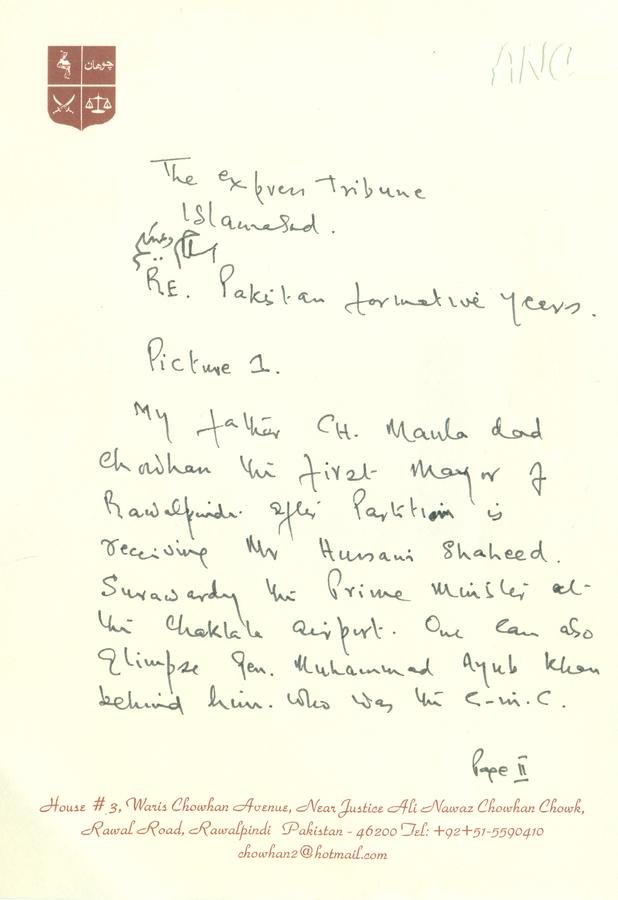 چوهان
ANC
The express Tribune
Islamabad.
السلام علیکم
RE. Pakistan formative years.
Picture 1.
My father CH. Maula dad
Chowhan the first Mayor of
Rawalpindi after Partition is
receiving Mr Hussani Shaheed.
Surawardy the Prime Minister at
the Chaklala airport. One can also
Glimpse Gen. Muhammad Ayub Khan
behind him. Who was the C-in-C.
Page II
House # 3, Waris Chowhan Avenue, Near Justice Ali Nawaz Chowhan Chowk,
Rawal Road, Rawalpindi Pakistan - 46200 Tel: +92+51-5590410
chowhan2@hotmail.com